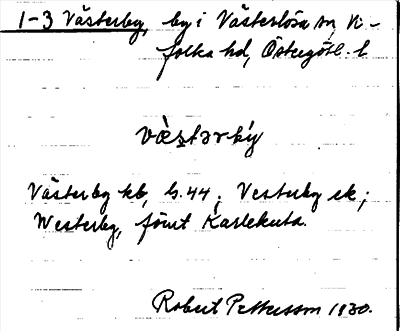 1-3 Västerby, by i Västerlösa sn, Vi-
folka hd, Östergötl. l.
væ̀stərbý
Västerby kb, s. 44; Vesterby ek;
Westerby, förut Karlekuta.
Robert Pettersson 1930.